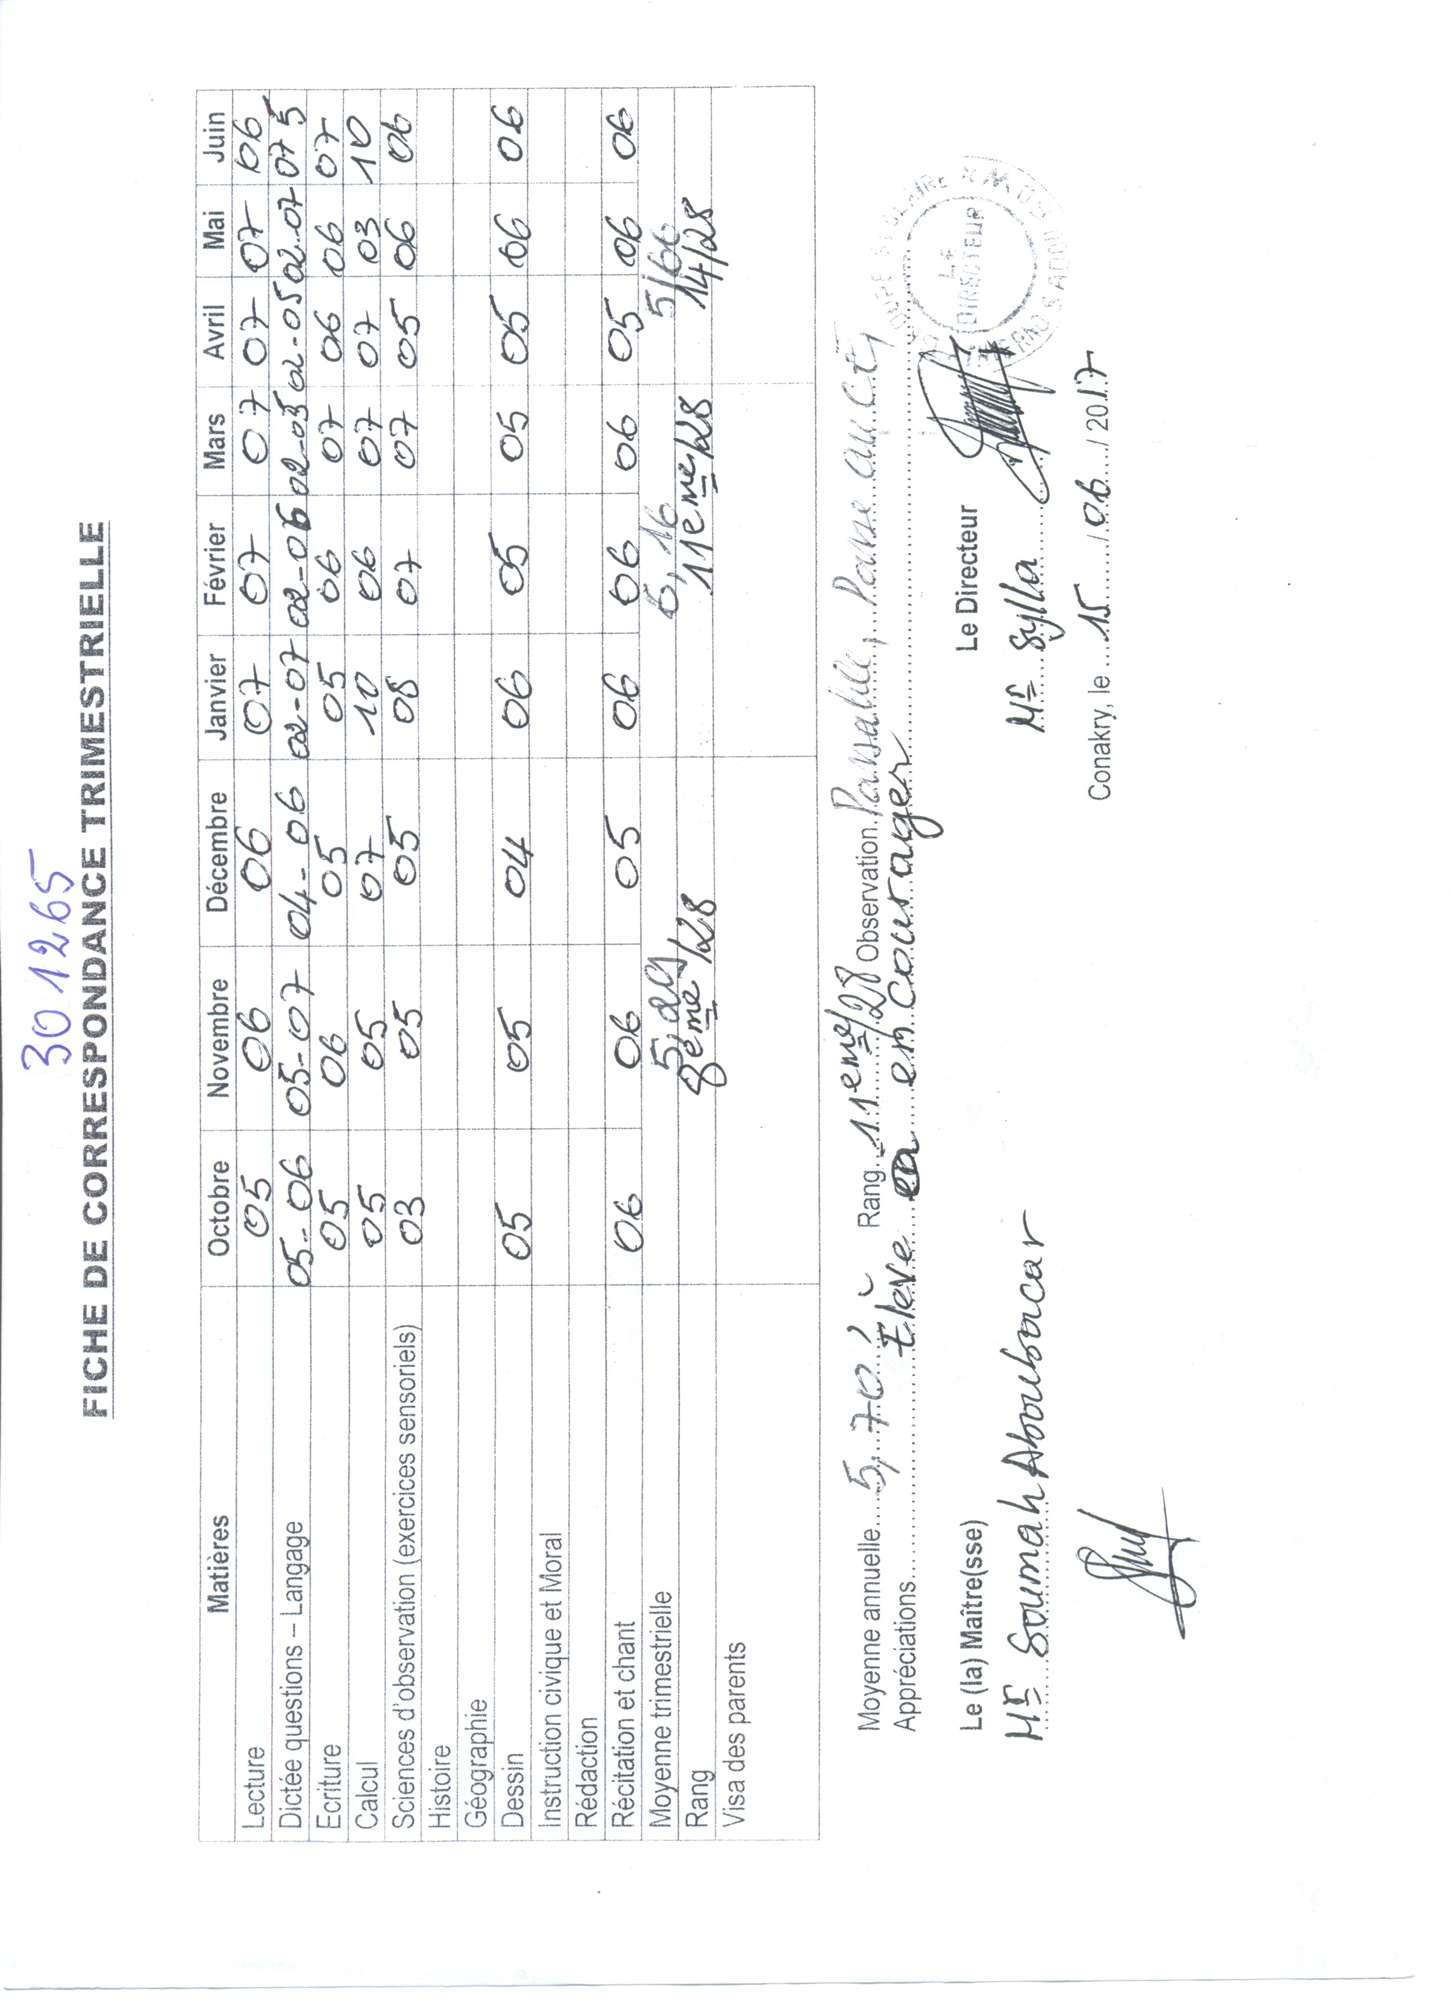 30 1265
FICHE DE CORRESPONDANCE TRIMESTRIELLE
Matières Octobre Novembre Décembre Janvier Février Mars Avril Mai Juin
Lecture 05 06 06 07 07 07 07 07 06
Dictée questions – Langage 05-06 05-07 04-06 02-07 02-06 02-05 02-05 02-07 07 5
Ecriture 05 06 05 05 06 07 06 06 07
Calcul 05 05 07 10 06 07 07 03 10
Sciences d'observation (exercices sensoriels) 03 05 05 08 07 07 05 06 06
Histoire
Géographie
Dessin 05 05 04 06 05 05 05 06 06
Instruction civique et Moral
Rédaction
Récitation et chant 06 06 05 06 06 06 05 06 06
Moyenne trimestrielle 6,16 5/66
Rang 8eme/28 11eme/28 14/28
Visa des parents
Moyenne annuelle 5,70 Rang 11eme/28 Observation Passable, Passe au
Appréciations Elève a encourager
Le (la) Maître(sse) Le Directeur
Mr Soumah Aboubacar Mr Sylla
LE
DIRECTEUR
Conakry, le 15 / 06 / 2017